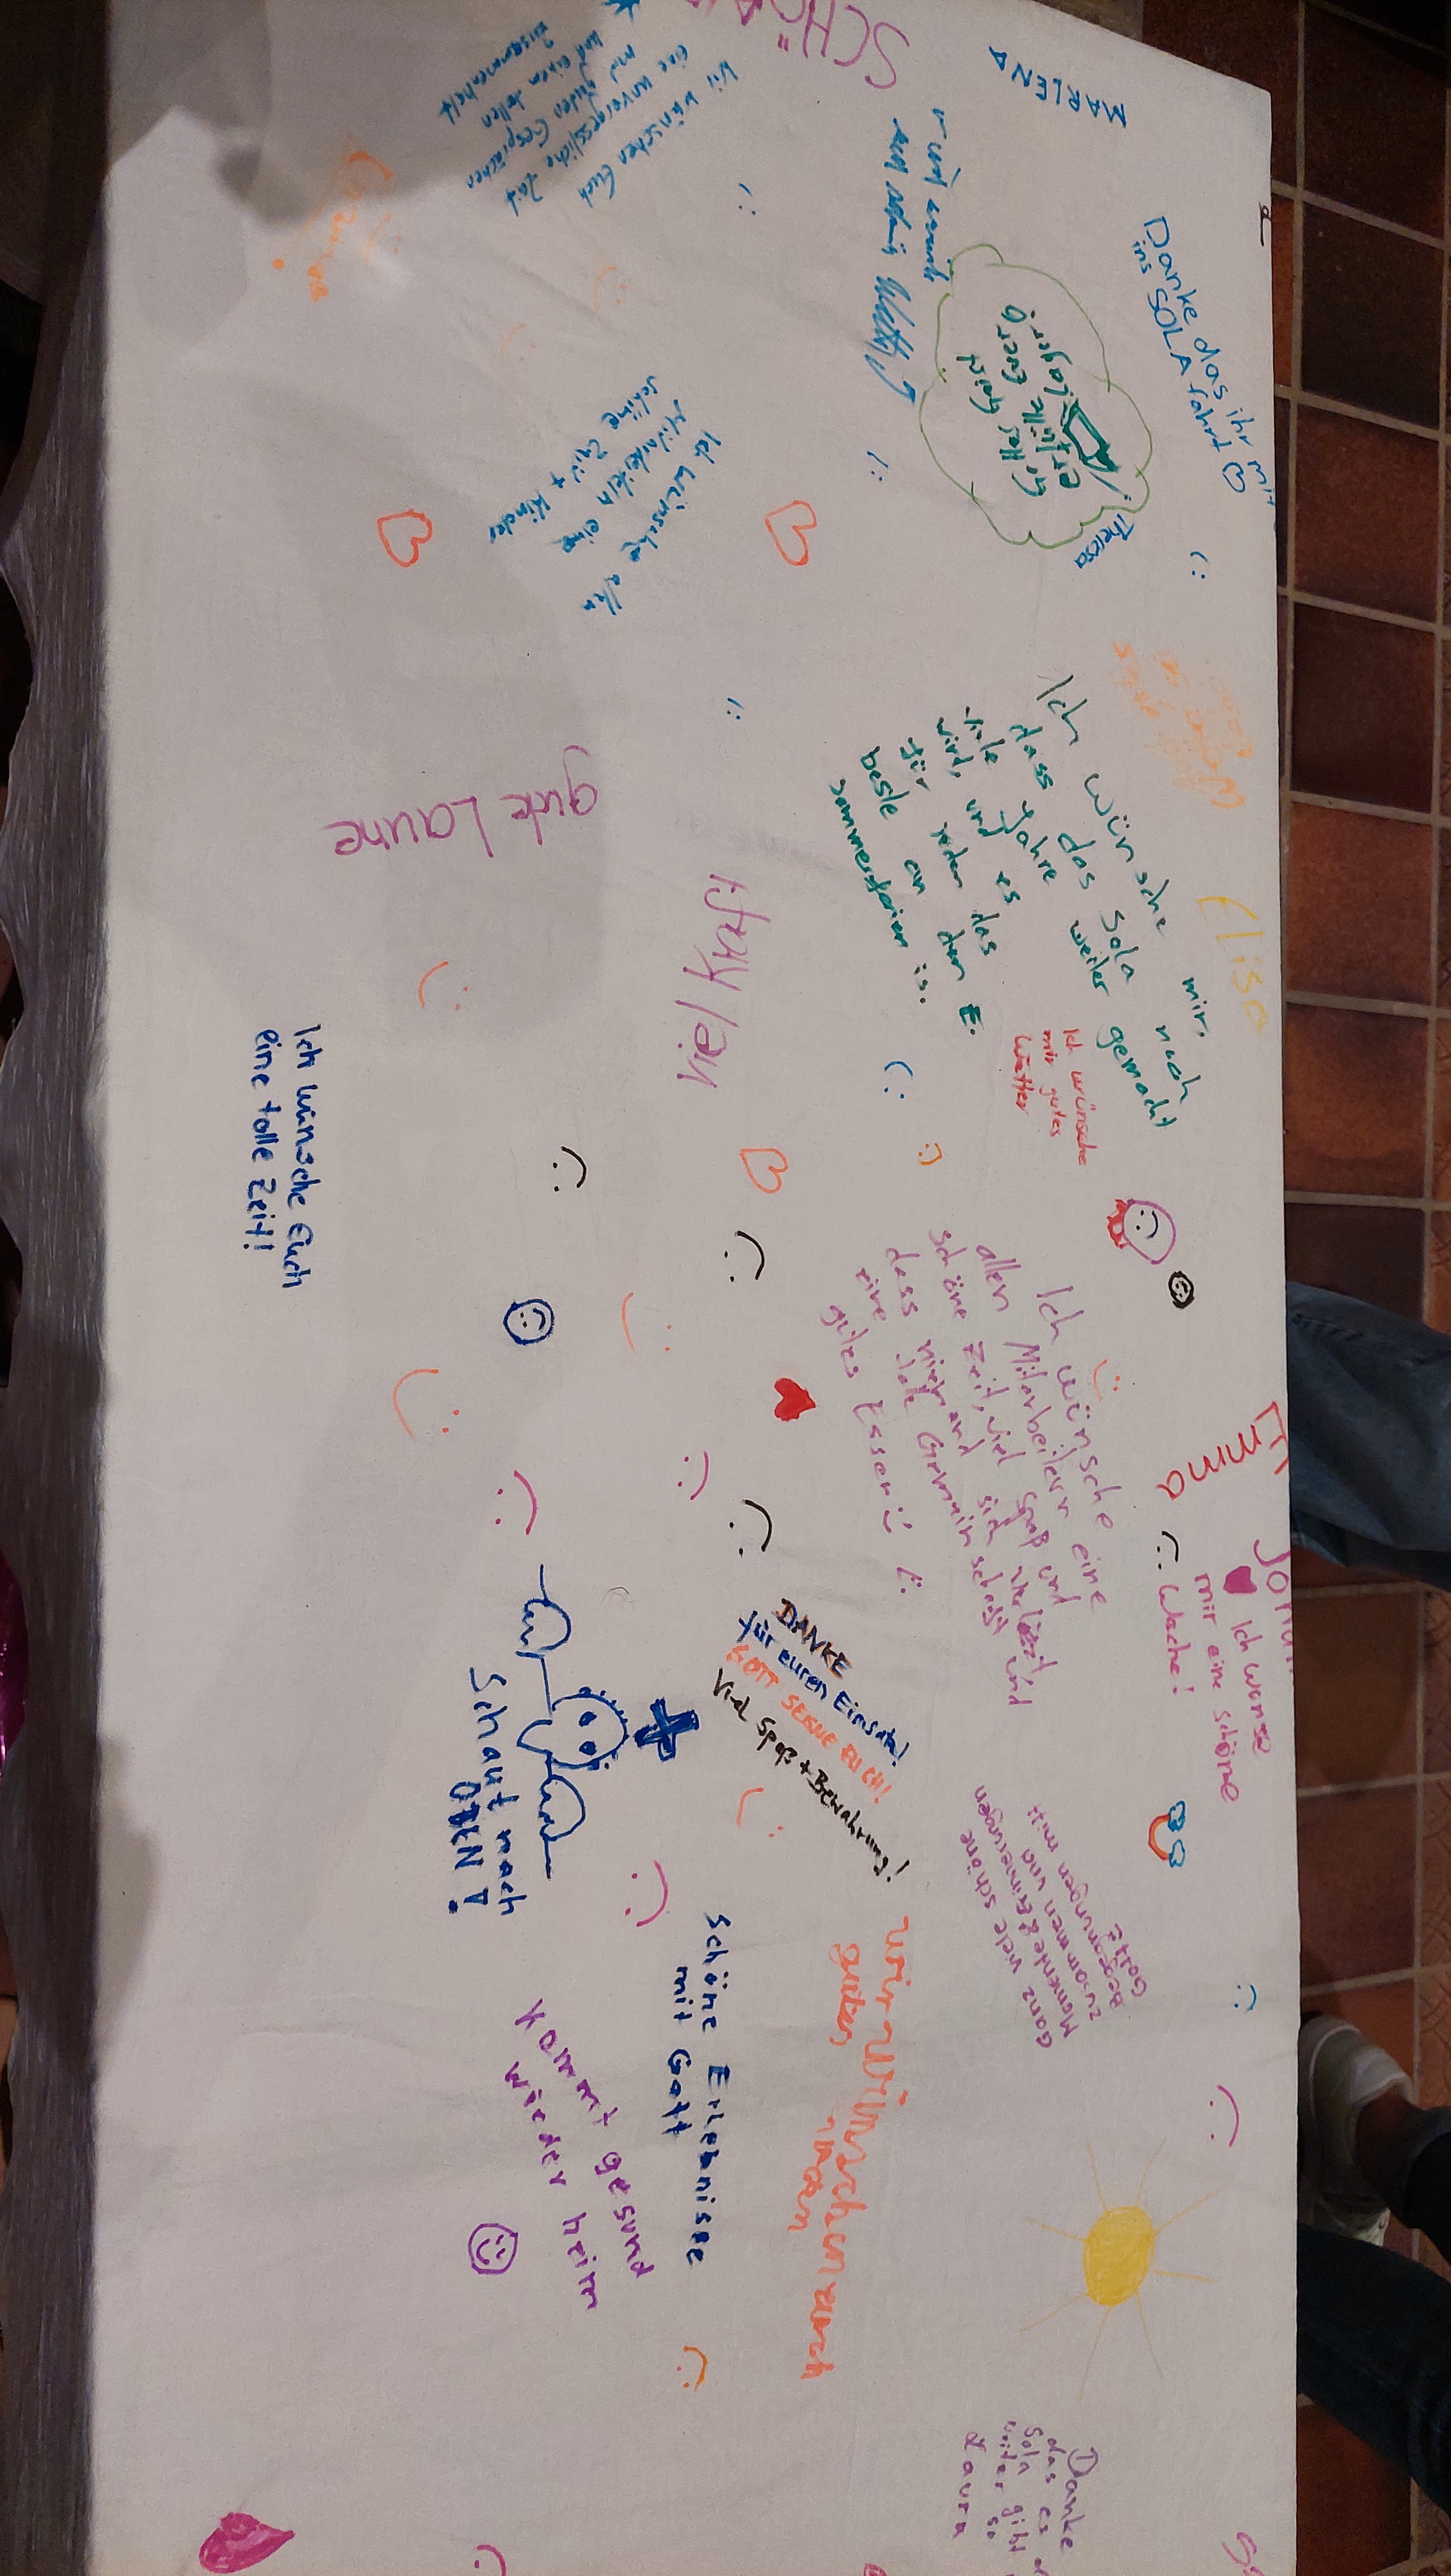 SCHÖ
MARLENA
Wir wünschen Euch
eine unvergessliche Zeit
mit guten Gesprächen
und einen tollen
Zusammenhalt
Danke das ihr mit
ins SOLA fahrt
Gottes Geist
erfülle Euer
Lager
Theresa
Ich wünsche allen
Mitarbeitern eine
schöne Zeit + Kinder
Elisa
Ich wünsche mir,
dass das Sola noch
viele Jahre weiter gemacht
wird, und es
für jeden das
beste an den
Sommerferien is.
gute Laune
Ich wünsche
mir gutes
Wetter
Ich wünsche Euch
eine tolle Zeit!
Ich wünsche
allen Mitarbeitern eine
schöne Zeit, viel Spaß und
dass niemand sich verletzt und
gutes Essen :)
Emma
Ich wünse
mir eine schöne
Woche!
DANKE
für euren Einsatz!
GOTT SEGNE EUCH!
Viel Spaß + Bewahrung!
Schaut nach
OBEN!
Ganz viele schöne
Momente & Erinnerungen
zusammen und
Begegnungen mitt
Gott
Schöne Erlebnisse
mit Gott
wir wünschen euch
guten
Kommt gesund
wieder heim
Danke
das es
Sola
weiter gibt
so
Laura